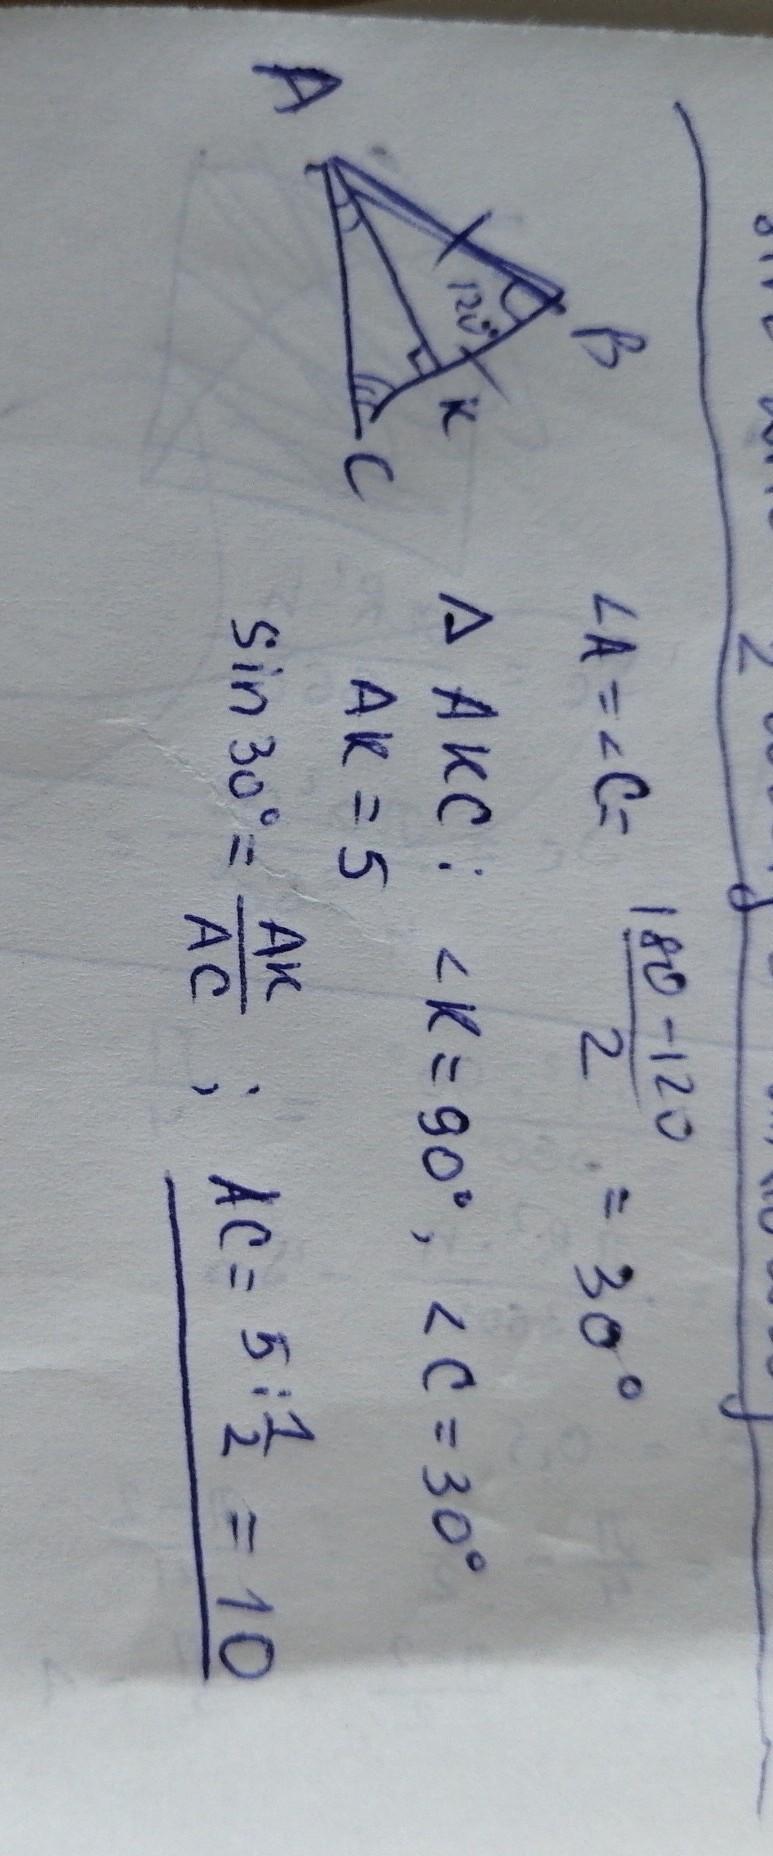 A
B
120°
K
C
∠A = ∠C = \frac{180-120}{2} = 30°
△ AKC: ∠K = 90°, ∠C = 30°
AK = 5
sin 30° = \frac{AK}{AC} ; AC = 5 : \frac{1}{2} = 10